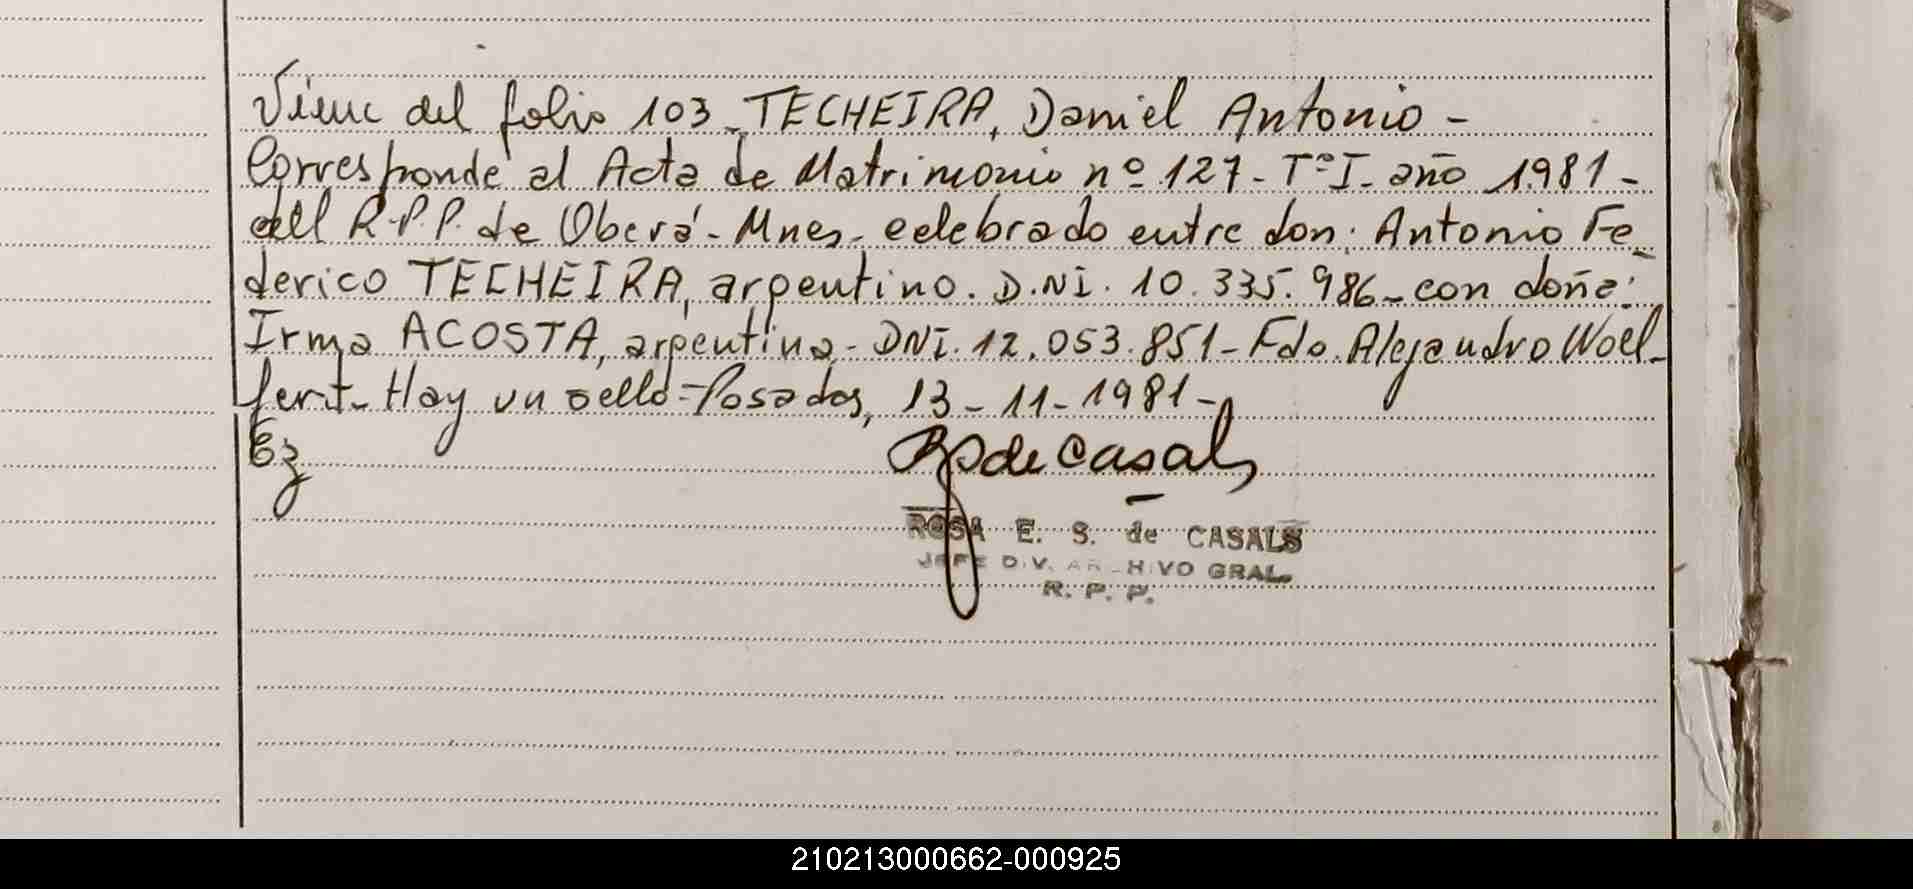 Viene del folio 103_TECHEIRA, Daniel Antonio -
Corresponde al Acta de Matrimonio nº 127- Tº I- año 1981-
dell R.P.P. de Oberá - Mnes- celebrado entre don: Antonio Fe-
derico TECHEIRA, argentino. D.NI. 10.335.986- con doña:
Irma ACOSTA, argentina- DNI. 12.053.851- Fdo. Alejandro Woel-
fert- Hay un sello - Posadas, 13-11-1981-
Ez
de Casals
ROSA E. S. de CASALS
JEFE DIV. ARCHIVO GRAL.
R. P. P.
210213000662-000925